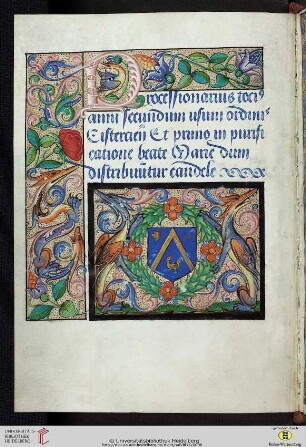 Processionarius toci⁹
anni secundum usum ordinis
Cistercien̄ Et primo in purifi
catione beate Marie dum
distribuūtur candele
UNIVERSITÄTS-
BIBLIOTHEK
HEIDELBERG
© Universitätsbibliothek Heidelberg
gefördert durch
Baden-Württemberg